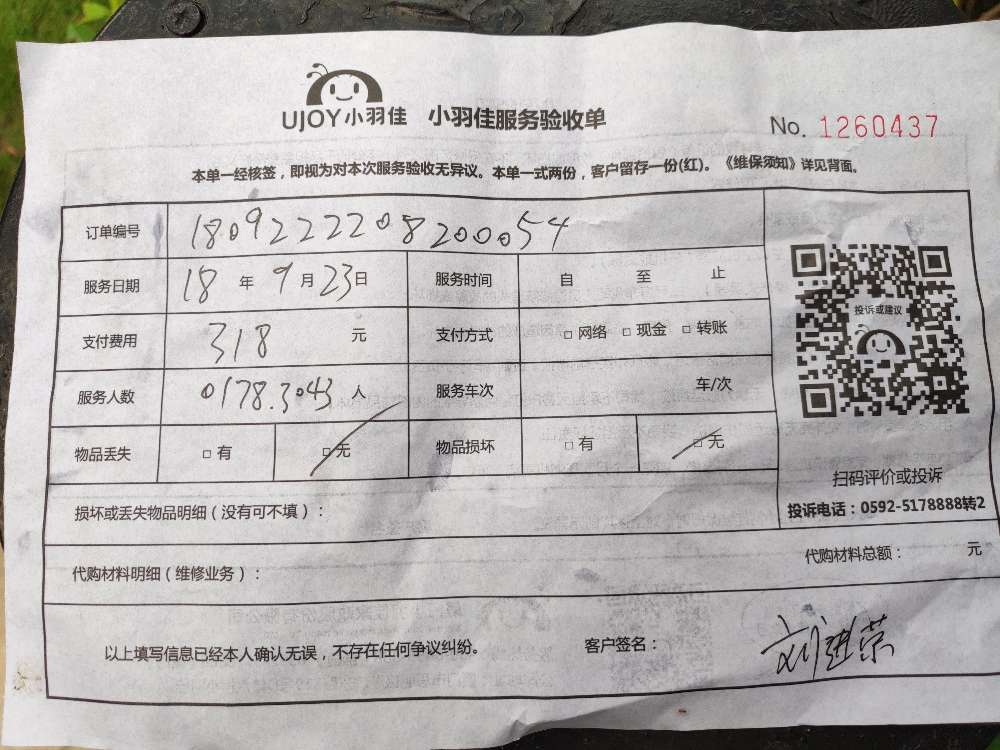 UJOY小羽佳 小羽佳服务验收单 No. 1260437
本单一经核签，即视为对本次服务验收无异议。本单一式两份，客户留存一份(红)。《维保须知》详见背面。
订单编号 1809222208200054
服务日期 18 年 9 月 23 日 服务时间 自 至 止
支付费用 318 元 支付方式 □ 网络 □ 现金 □ 转账
服务人数 0178.3043 人 服务车次 车/次
物品丢失 □ 有 □ 无 物品损坏 □ 有 □ 无
投诉或建议
扫码评价或投诉
投诉电话：0592-5178888转2
损坏或丢失物品明细（没有可不填）：
代购材料明细（维修业务）： 代购材料总额： 元
以上填写信息已经本人确认无误，不存在任何争议纠纷。 客户签名： 刘进荣